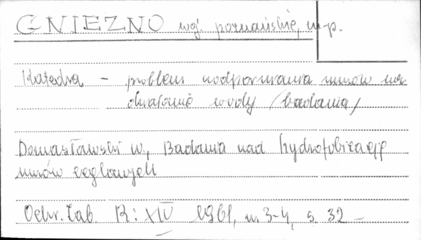 GNIEZNO woj. poznańskie, m-p.
Katedra - problem uodporniania murów na
działanie wody (badania)
Domasłowski W., Badania nad hydrofobizacją
murów ceglanych
Ochr. Zab. R: XIV 1961, nr 3-4, s. 32 -